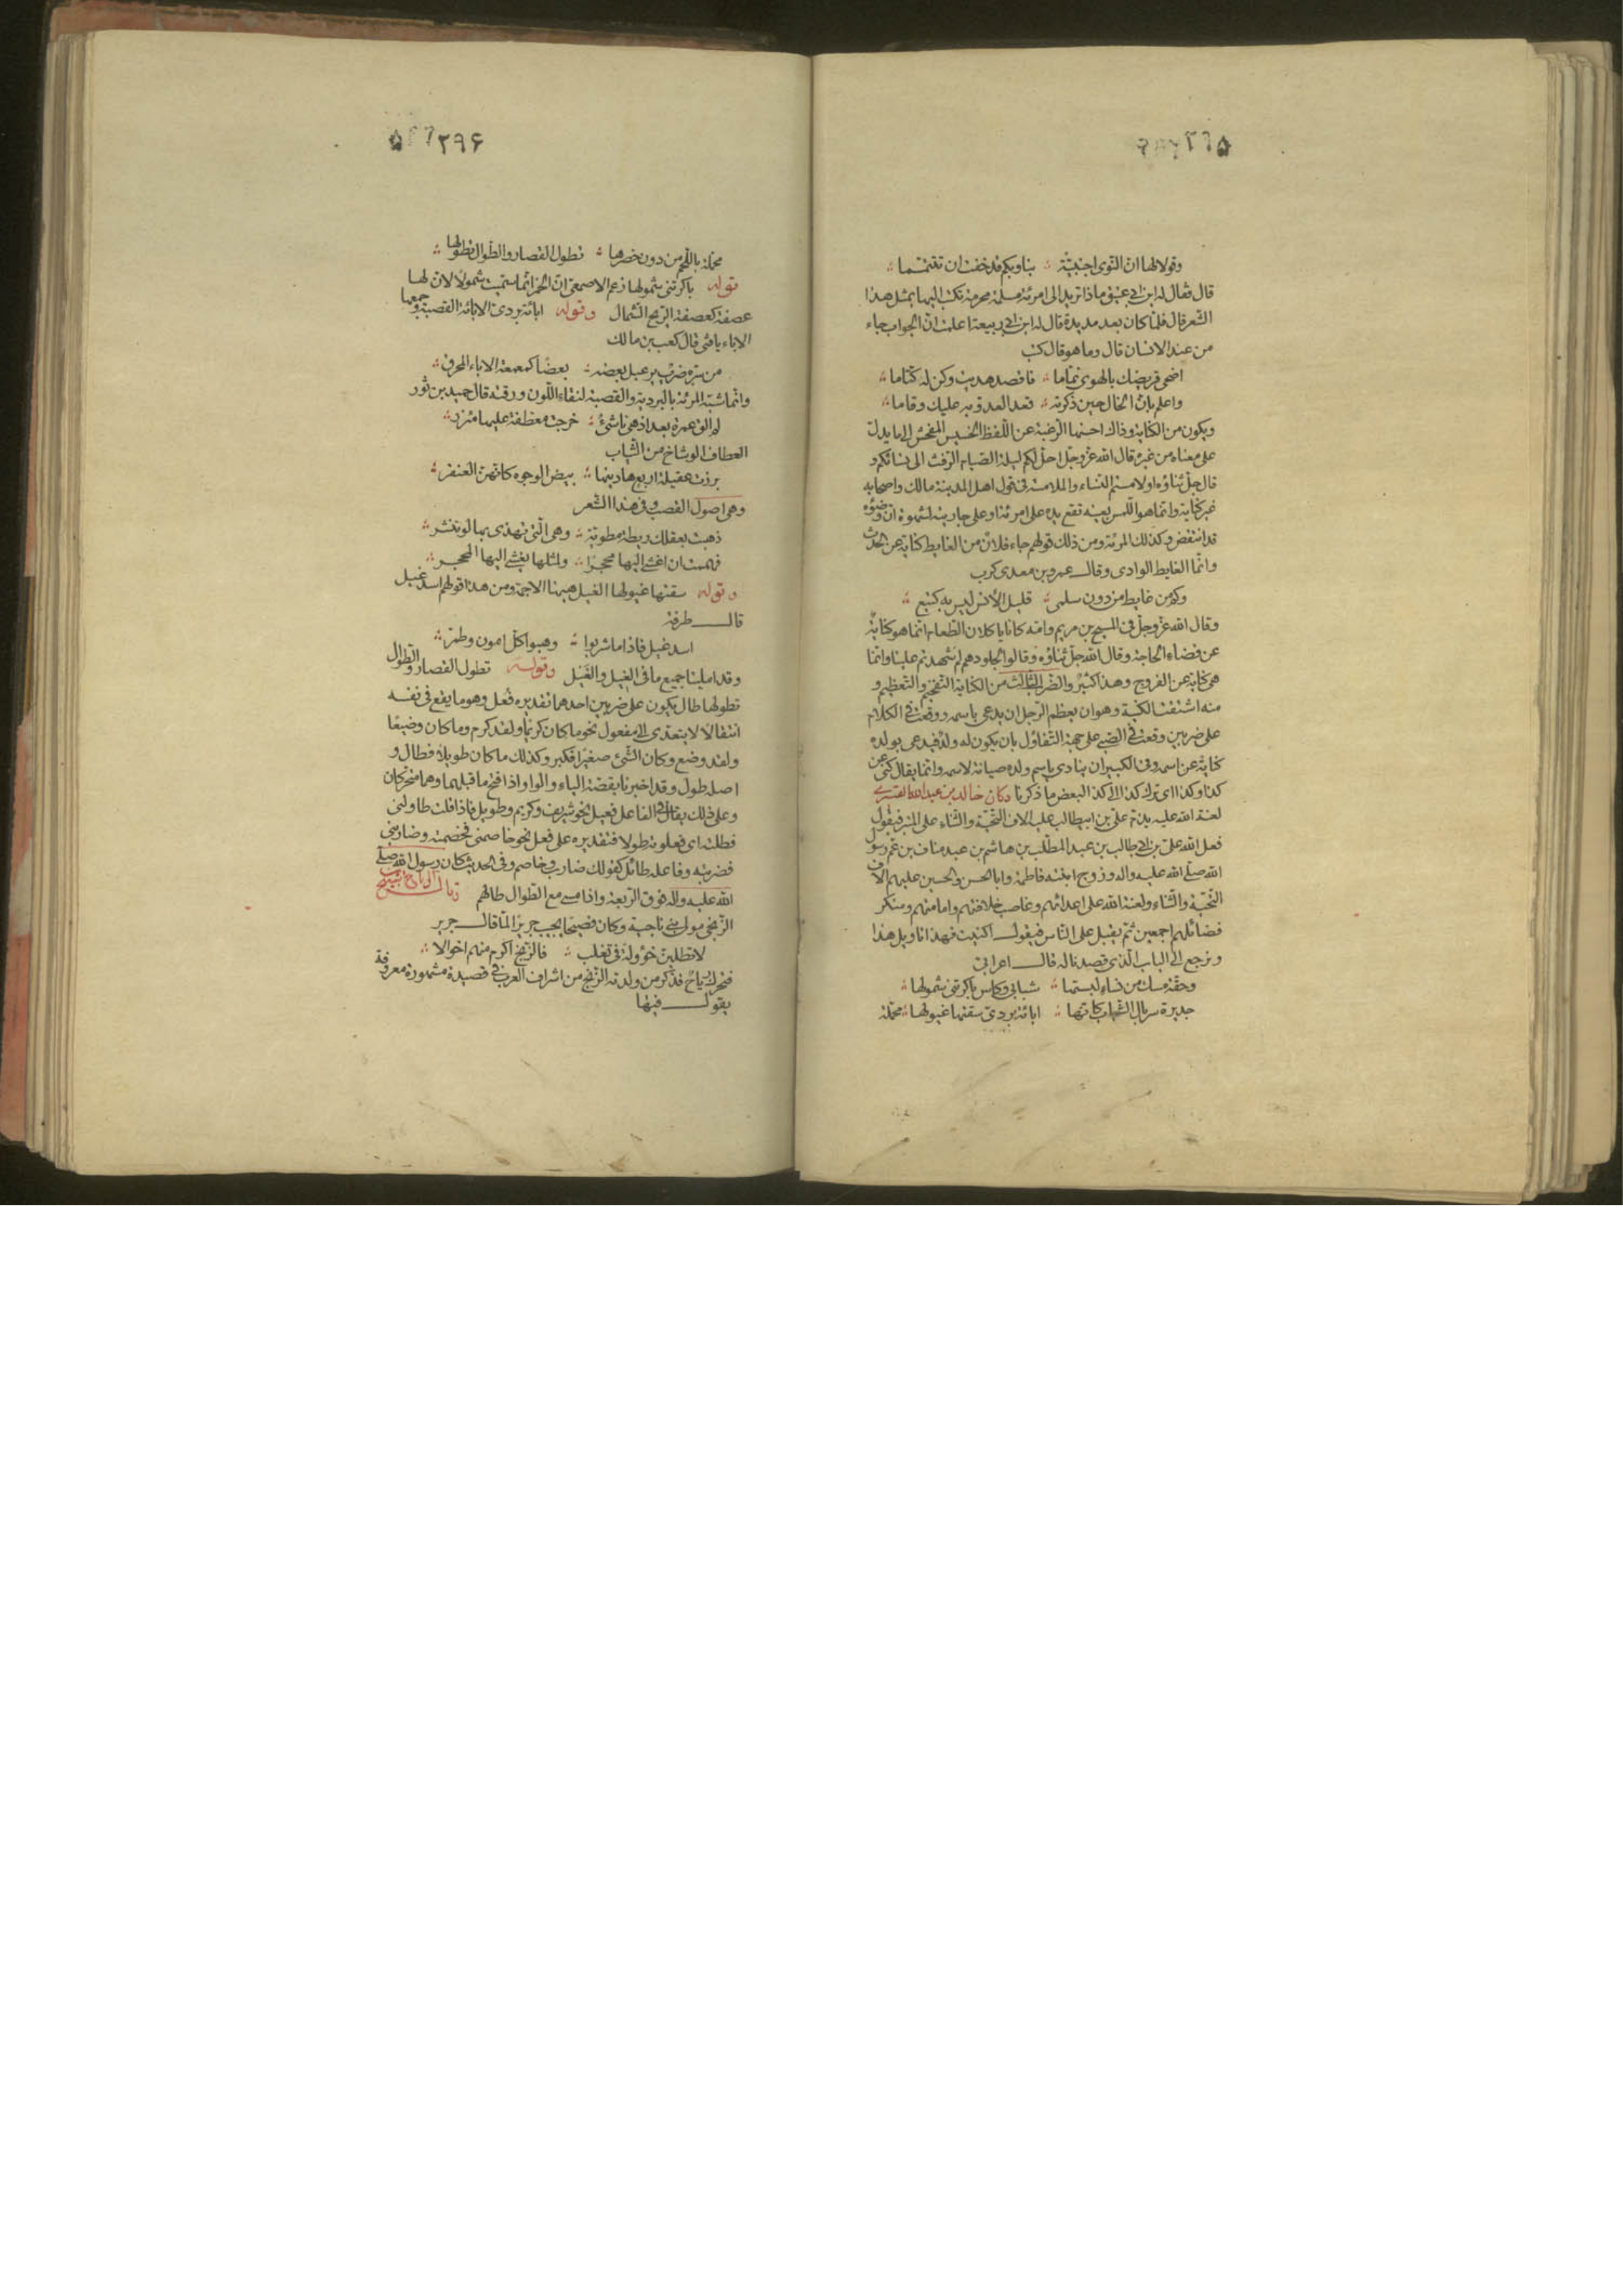 ۲۹۵
وقولا لها ان النوى اجنبيّة ؞ بنا وبكم قد خفت ان تتيمّما ؞
قال فقال له ابن ابي عتيق ماذا تريد الى امرئة مسلمة محرمة تكتب اليها بمثل هذا
الشعر قال فلمّا كان بعد مديدة قال له ابن ابي ربيعة اعلمت انّ الجواب جاء
من عند الانسان قال وما هو قال كتب
اضحى قريضك بالهوى نمّاما ؞ فاقصد هديت وكن له كتّاما ؞
واعلم بانّ الخال حين ذكرته ؞ قعد العدوّ به عليك وقاما ؞
ويكون من الكناية وذاك احسنها الرّغبة عن اللّفظ الخسيس المفحش الى ما يدلّ
على معناه من غيره قال الله عزّ وجلّ احلّ لكم ليلة الصّيام الرّفث الى نسائكم و
قال جلّ ثناؤه او لامستم النّساء والملامسة فى قول اهل المدينة مالك واصحابه
غير كناية وانّما هو اللّمس بعينه تقع يده على امرئة او على جارية لشهوة انّ وضوءه
قد انتقض وكذلك المرئة ومن ذلك قولهم جاء فلان من الغايط كناية عن الحدث
وانّما الغايط الوادى وقال عمرو بن معدى كرب
وكم من غايط من دون سلمى ؞ قليل الانس ليس به كتيع ؞
وقال الله عزّ وجلّ فى المسيح بن مريم وامّه كانا ياكلان الطّعام انّما هو كناية
عن قضاء الحاجة وقال الله جلّ ثناؤه وقالوا لجلودهم لم شهدتم علينا وانّما
هى كناية عن الفروج وهذا كثير والضرب الثالث من الكناية التفخيم والتعظيم و
منه اشتقت الكنية وهو ان يعظم الرّجل ان يدعى باسمه ووقعت فى الكلام
على ضربين وقعت فى الصّبى على جهة التّفاؤل بان يكون له ولد فيدعى بولده
كناية عن اسمه وفى الكبير ان ينادى باسم ولده صيانة لاسمه وانّما يقال كنى عن
كذا وكذا اى ترك كذا الى كذا لبعض ما ذكرنا وكان خالد بن عبد الله القسرى
لعنة الله عليه يذمّ علىّ بن ابيطالب عليه الاف التّحيّة والثّناء على المنبر فيقول
فعل الله على بن ابى طالب بن عبد المطّلب بن هاشم بن عبد مناف بن عم رسول
الله صلّى الله عليه واله وزوج ابنته فاطمة وابا الحسن والحسين عليهم الاف
التّحيّة والثّناء ولعنة الله على اعدائهم وغاصب خلافتهم وامامتهم ومنكر
فضائلهم اجمعين ثمّ يقبل على النّاس فيقول اكنيت فهذا تاويل هذا
ونرجع الى الباب الّذى قصدنا له قال اعرابىّ
وحقّة مسك من نساء لبستها ؞ شبابى وكاس باكرتنى شمولها ؞
جديدة سربال الشّباب كانّها ؞ اباءة بردىّ سقتها غيولها ؞ مخملة
۲۹۶
مخملة باللّحم من دون خصرها ؞ تطول القصار والطّوال تطولها ؞
قوله باكرتنى شمولها زعم الاصمعى انّ الخمر انّما سمّيت شمولا لانّ لها
عصفة كعصفة الريح الشّمال وقوله اباءة بردىّ الاباءة القصبة وجمعها
الاباء يا فتى قال كعب بن مالك
من سرّه ضرب يرعبل بعضه ؞ بعضا كمعمعة الاباء المحرق ؞
وانّما شبّه المرئة بالبردية والقصبة لنقاء اللّون ورقّته قال حميد بن ثور
لم الق عمرة بعد اذ هى ناشئ ؞ خرجت معطّفة عليها مئزر ؞
العطاف الوشاخ من الثّياب
برزت عقيلة اربع هادينها ؞ بيض الوجوه كانّهنّ العنقر ؞
وهى اصول القصب وفى هذا الشّعر
ذهبت بعقلك ريطة مطويّة ؞ وهى الّتى تهدى بها لو تنشر ؞
فهممت ان اغشى اليها محجرا ؞ ولمثلها يغشى اليها المحجر ؞
وقوله سقتها غيولها الغيل ههنا الاجمة ومن هذا قولهم اسد غيل
قال طرفة
اسد غيل فاذا ما شربوا ؞ وهبوا كلّ امون وطمرّ ؞
وقد املينا جميع ما فى الغيل والغيل وقوله تطول القصار والطّوال
تطولها طال يكون على ضربين احدهما تقديره فعُل وهو ما يقع فى نفسه
انتقالا لا يتعدّى الى مفعول نحو ما كان كريما ولقد كرم وما كان وضيعا
ولقد وضع وكان الشّئ صغيرا فكبر وكذلك ما كان طويلا فطال و
اصله طول وقد اخبرنا بقصّة الياء والواو اذا فتح ما قبلهما وهما متحرّكان
وعلى ذلك يقال فى الفاعل فعيل نحو شريف وكريم وطويل فاذا قلت طاولنى
فطلته اى فعلوته طولا فتقديره على فعل نحو خاصمنى فخصمته وضاربنى
فضربته وفاعله طائل كقولك ضارب وخاصم وفى الحديث كان رسول الله صلّى
الله عليه واله فوق الرّبعة واذا مسى مع الطوال طالهم قال رياح بن سنيح
الزّنجى مولى بنى ناجية وكان فصيحا يجيب جريرا لمّا قال جرير
لا تطلبنّ خؤولة فى تغلب ؞ فالزّنج اكرم منهم اخوالا ؞
فتحرّك رياح فذكر من ولدته الزّنج من اشراف العرب فى قصيدة مشهورة معروفة
يقول فيها